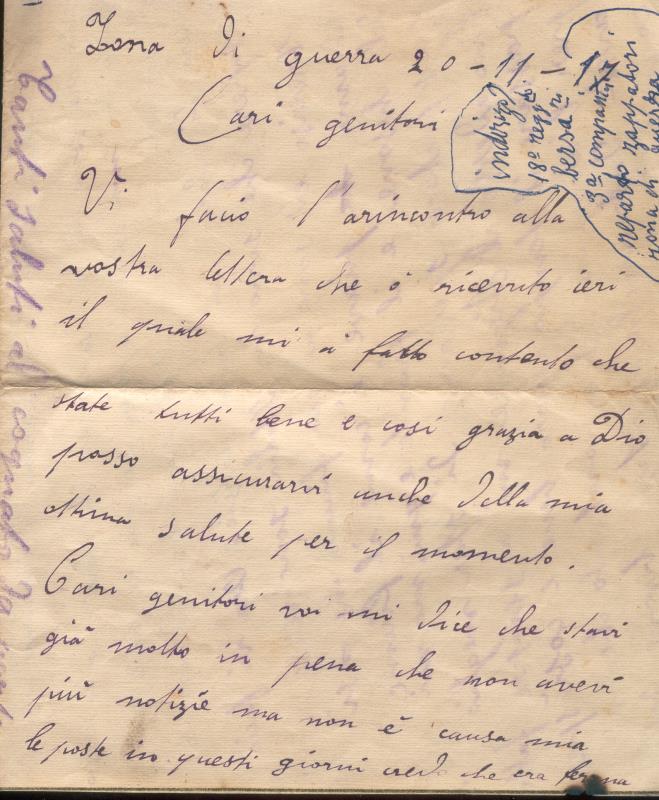 Zona di guerra 20-11-17
Cari genitori
indirizzo
18º regg di
bersa ri
3ª compagnia
reparto zappatori
zona di guerra
Vi facio l'arincontro alla
vostra lettera che ò ricevuto ieri
il quale mi a fatto contento che
state tutti bene e cosi grazia a Dio
posso assicurarvi anche della mia
ottima salute per il momento.
Cari genitori voi mi dice che stavi
già molto in pena che non avevi
più notizie ma non è causa mia
le poste in questi giorni credo che era ferma
tanti saluti al cognato